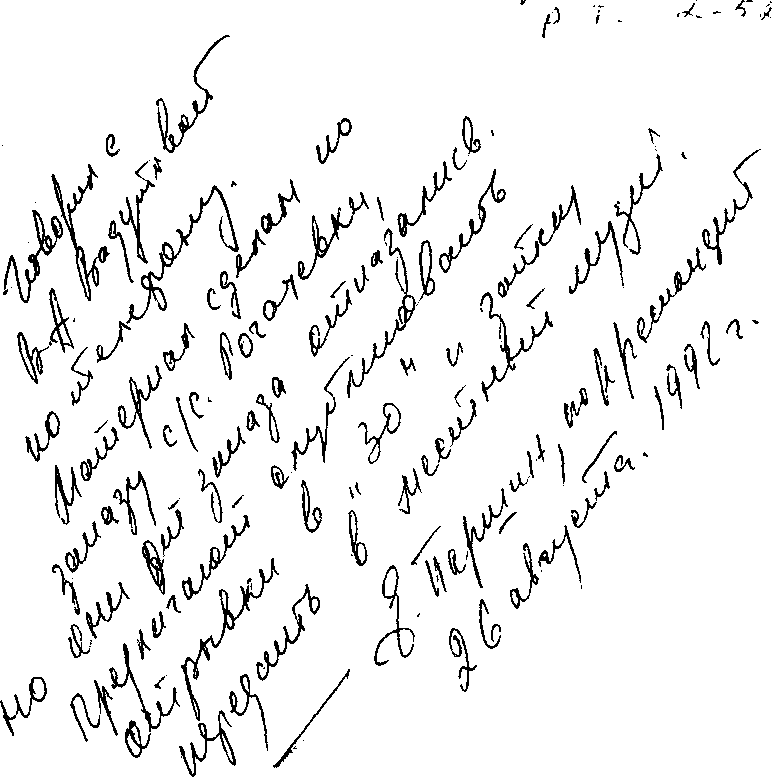 р. т. 2-52
Говорил с
В.А.
по телефону.
Материал сделан по
заказу с/с. Рогачевки,
но они от заказа отказались.
Предлагают опубликовать
отрывки в "ЗО" и
передать в местный музей.
Э. Першин, корреспондент
26 августа. 1992 г.